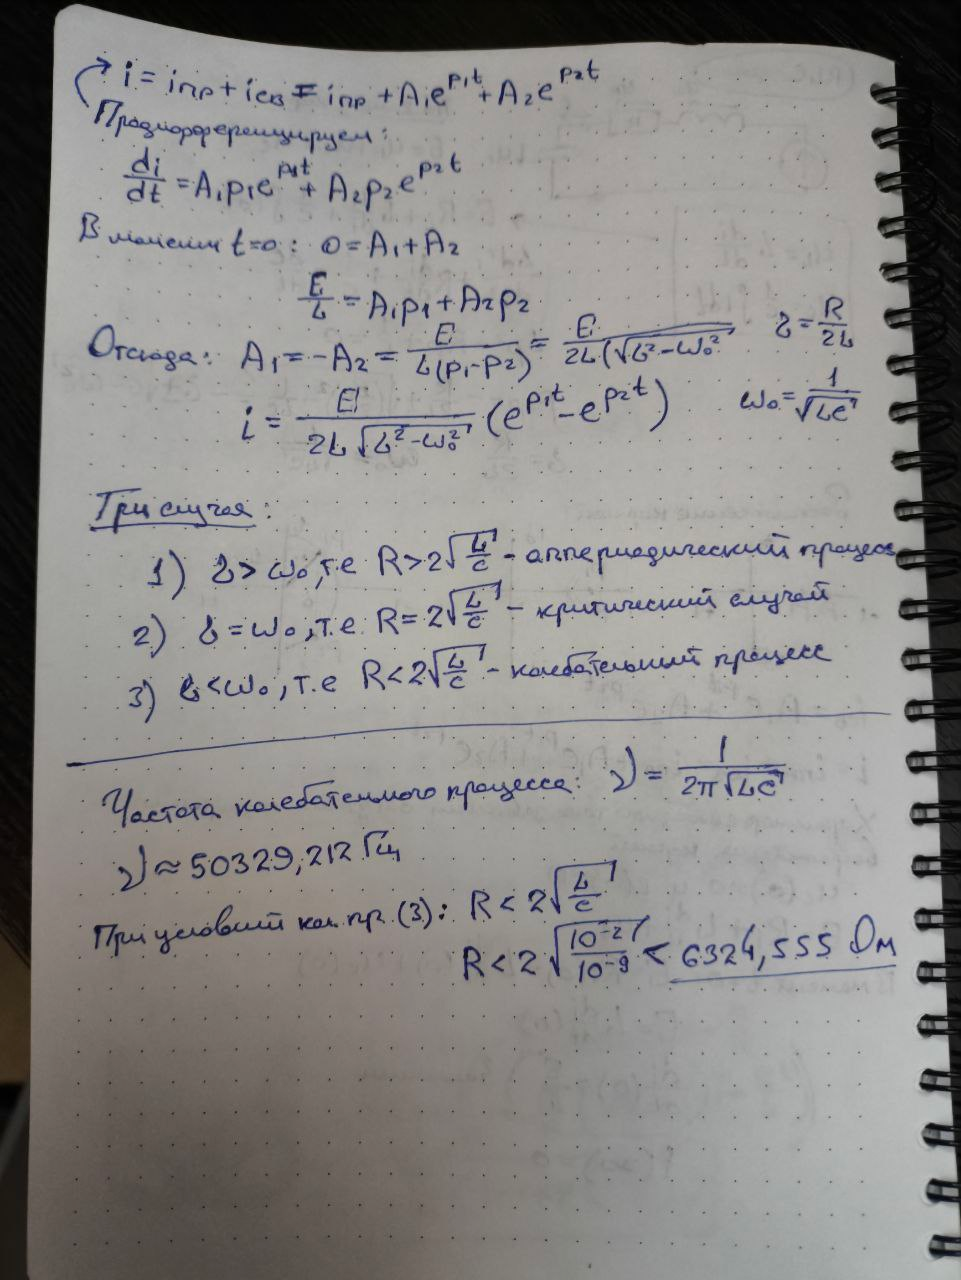 i = iпр + iсв = iпр + A₁e^{p₁t} + A₂e^{p₂t}
Продифференцируем:
di/dt = A₁p₁e^{p₁t} + A₂p₂e^{p₂t}
В момент t=0: 0 = A₁ + A₂
E/L = A₁p₁ + A₂p₂
Отсюда: A₁ = -A₂ = E/(L(p₁-p₂)) = E/(2L(√(δ²-ω₀²) δ = R/2L
i = E/(2L√(δ²-ω₀²)) (e^{p₁t} - e^{p₂t}) ω₀ = 1/√(LC)
Три случая:
1) δ > ω₀, т.е R > 2√(L/C) - аппериодический процесс
2) δ = ω₀, т.е. R = 2√(L/C) - критический случай
3) δ < ω₀, т.е R < 2√(L/C) - колебательный процесс
Частота колебательного процесса: ν = 1/(2π√(LC))
ν ≈ 50329,212 Гц
При условий кол. пр. (3): R < 2√(L/C)
R < 2√(10⁻²/10⁻⁹) < 6324,555 Ом